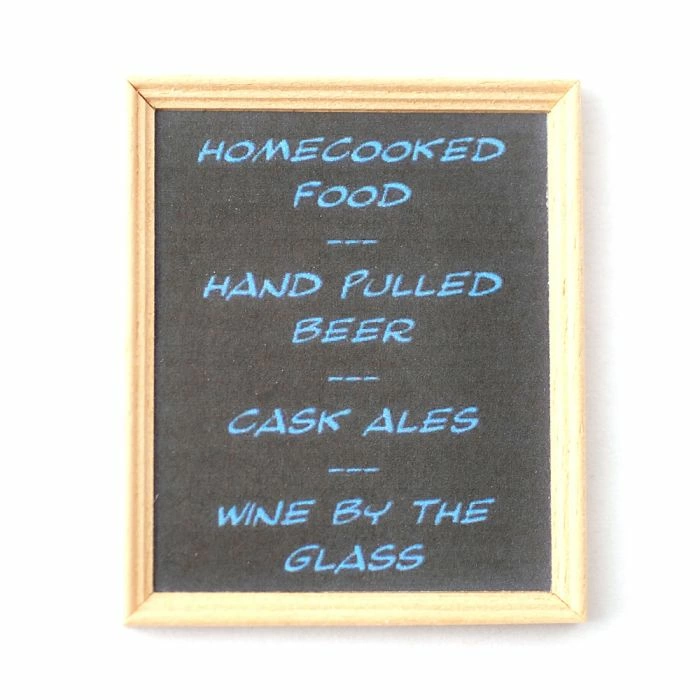 HOMECOOKED
FOOD
---
HAND PULLED
BEER
---
CASK ALES
---
WINE BY THE
GLASS